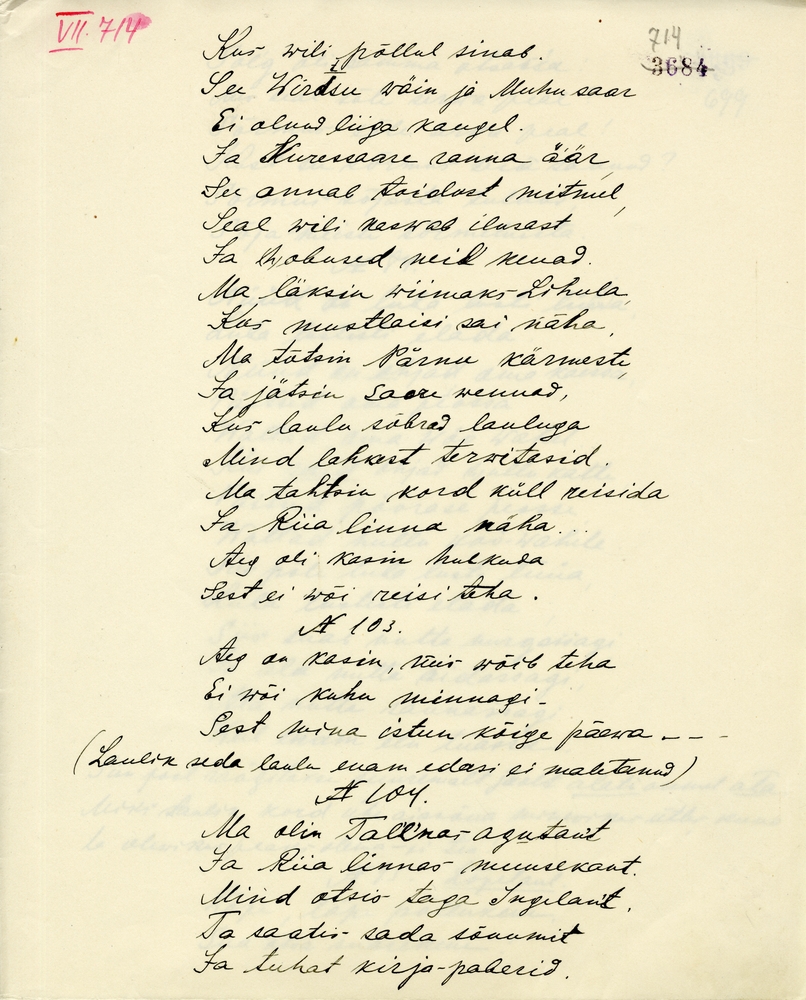 VII. 714
714
3684
Kus wili põllul sinab.
See Wirtsu wäin ja Muhu saar
Ei olnud liiga kaugel.
Ja Kuressaare ranna äär,
See annab toidust mitmel,
Seal wili kaswab ilusast
Ja hobused neil kenad.
Ma läksin wiimaks Lihula,
Kus mustlaisi sai näha,
Ma tõtsin Pärnu kärmeste,
Ja jätsin Saare wennad,
Kus laulu sõbrad lauluga
Mind lahkest terwitasid.
Ma tahtsin kord küll reisida
Ja Riia linna näha...
Aeg oli kasin hulkuda
Sest ei wõi reisi teha.
№ 103.
Aeg on kasin, mis wõib teha
Ei wõi kuhu minnagi-
Sest mina istun kõige päewa - - -
(Laulik seda laulu enam edasi ei mäletanud)
№ 104.
Ma olin Tallinas agutant
Ja Riia linnas muusekant.
Mind otsis taga Ingelant,
Ta saatis sada sõnumit
Ja tuhat kirja-paberid.